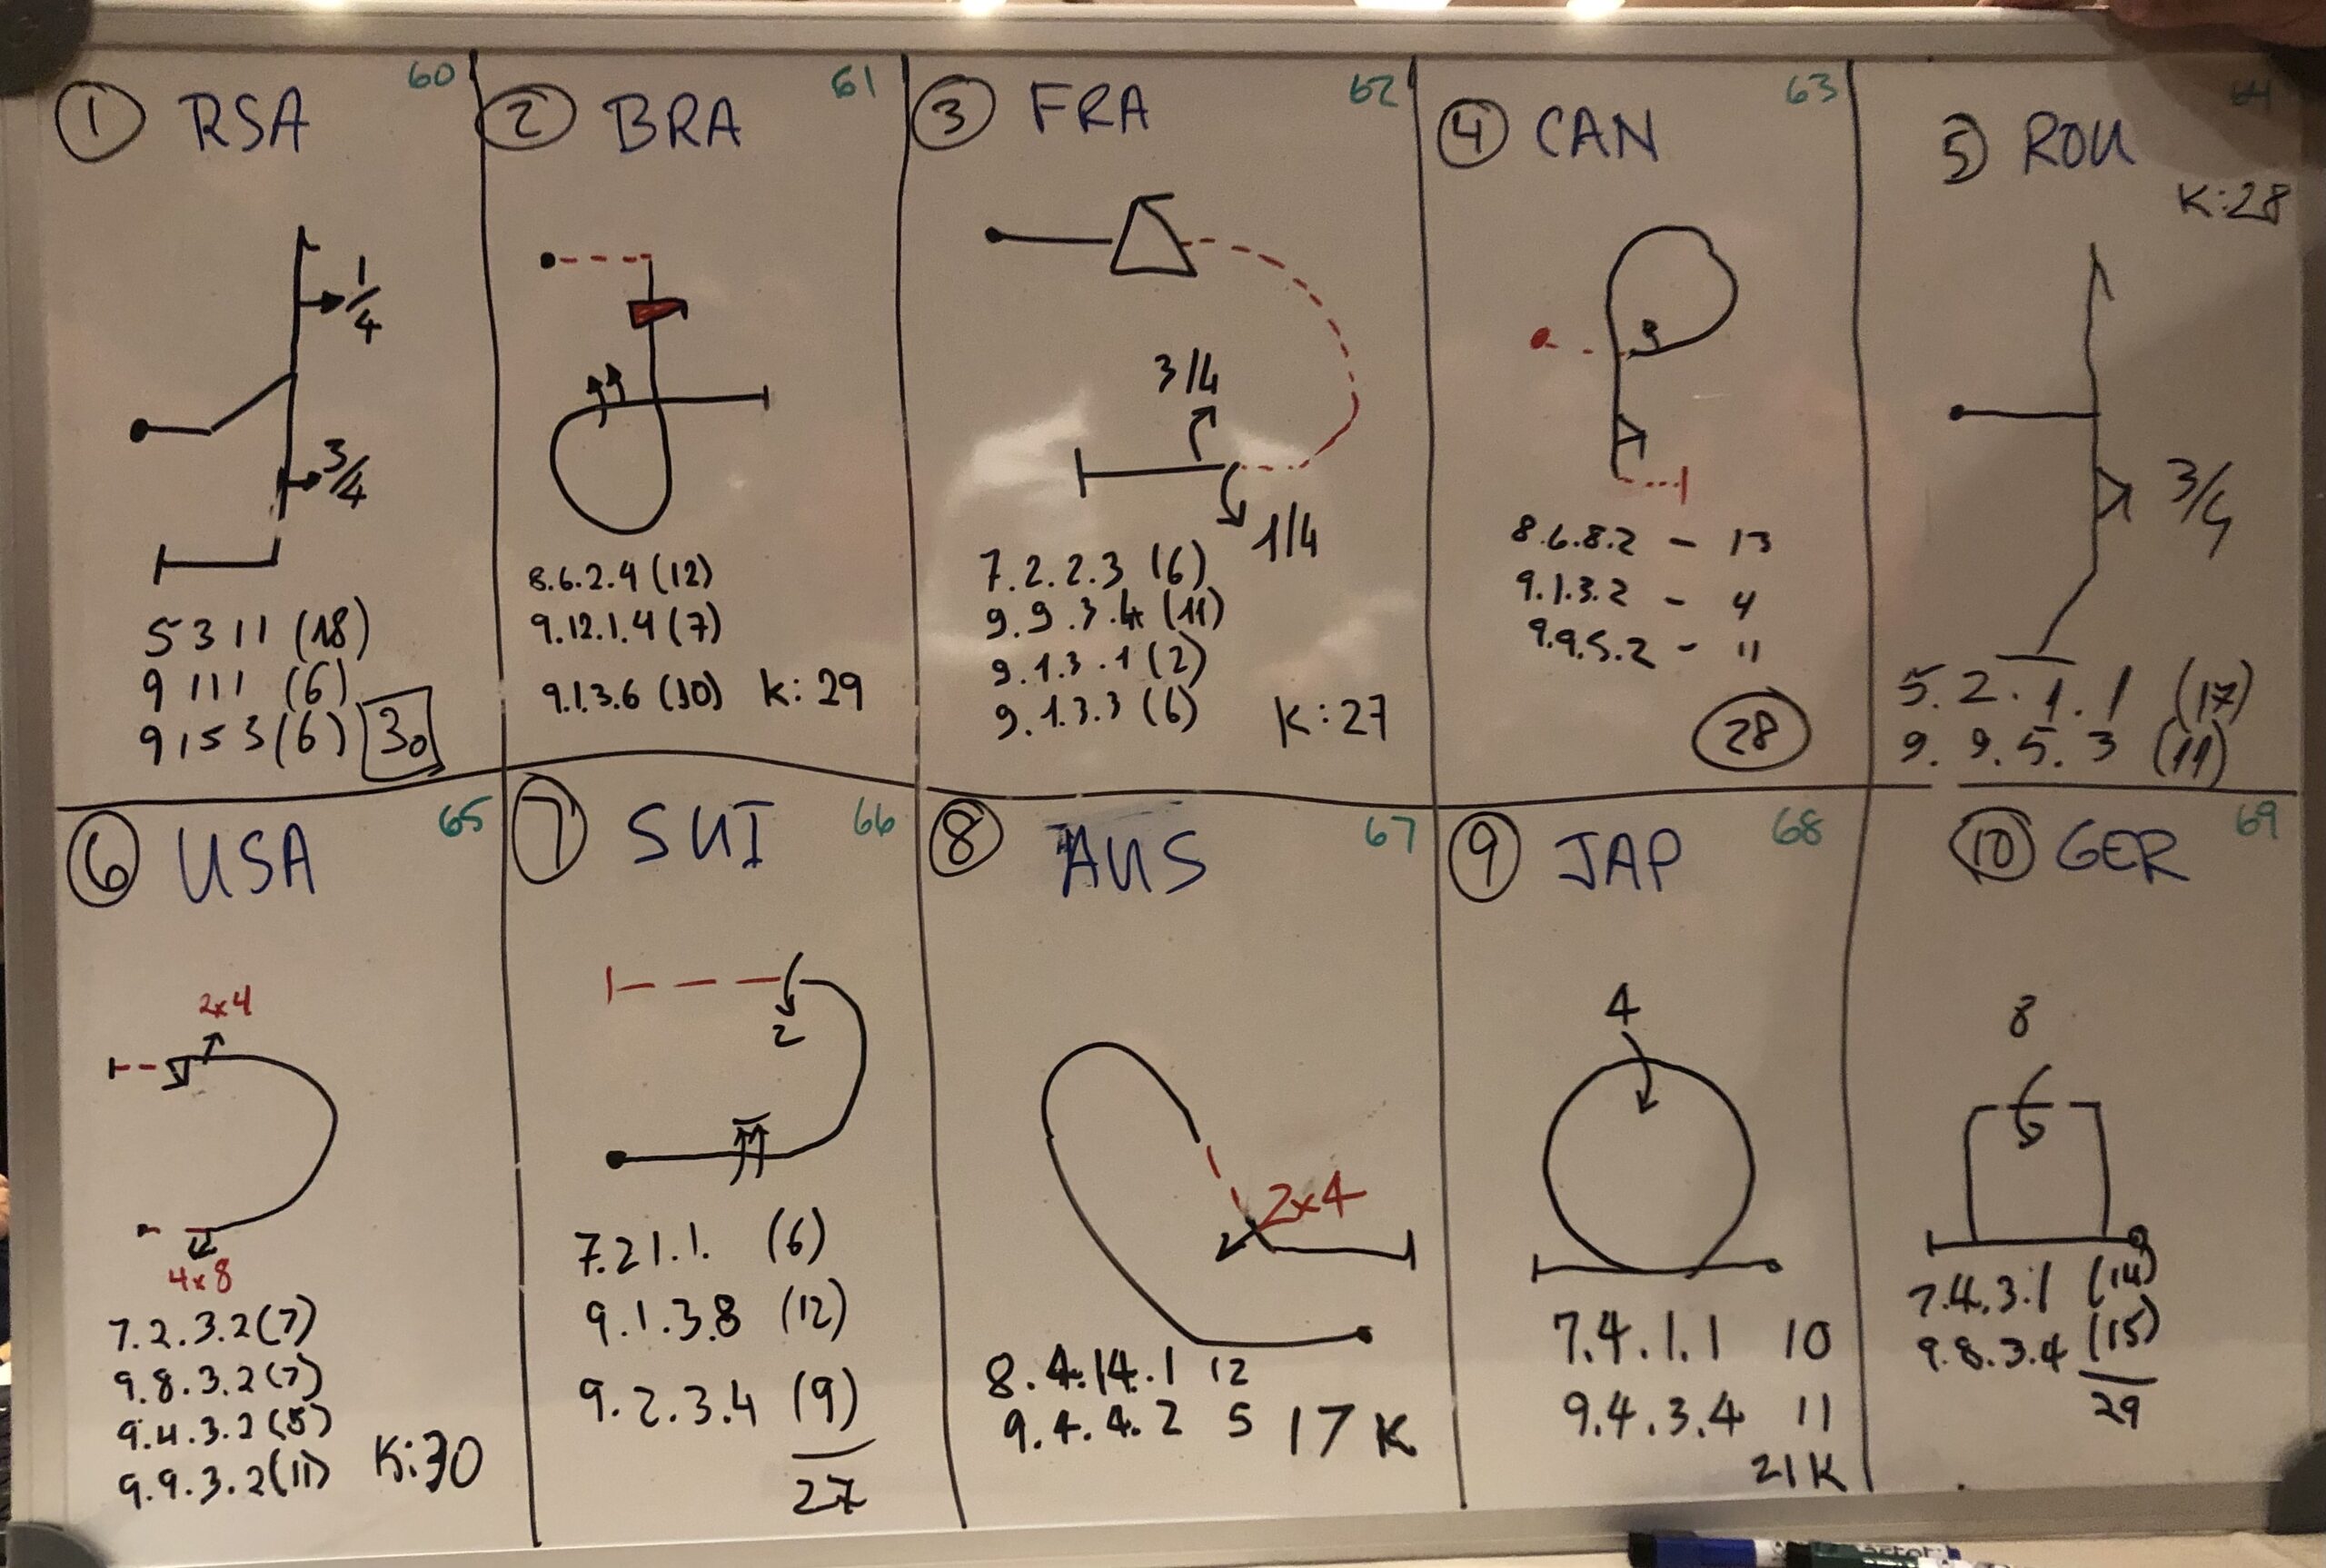 60
① RSA
1/4
3/4
5 3 1 1 (18)
9 1 1 1 (6)
9 1 5 3 (6) 30
61
② BRA
8.6.2.4 (12)
9.12.1.4 (7)
9.1.3.6 (10) K: 29
62
③ FRA
3/4
1/4
7.2.2.3 (6)
9.9.3.4 (11)
9.1.3.1 (2)
9.1.3.3 (6) K: 27
63
④ CAN
8.6.8.2 - 13
9.1.3.2 - 4
9.9.5.2 - 11
28
64
5) ROU
K: 28
3/4
5.2.1.1 (17)
9.9.5.3 (11)
65
⑥ USA
2x4
4x8
7.2.3.2 (7)
9.8.3.2 (7)
9.4.3.2 (5)
9.9.3.2 (11) K: 30
66
⑦ SUI
2
7.2 1.1. (6)
9.1.3.8 (12)
9.2.3.4 (9)
27
67
⑧ AUS
2x4
8.4.14.1 12
9.4.4.2 5 17 K
68
⑨ JAP
4
7.4.1.1 10
9.4.3.4 11
21 K
69
⑩ GER
8
7.4.3.1 (14)
9.8.3.4 (15)
29